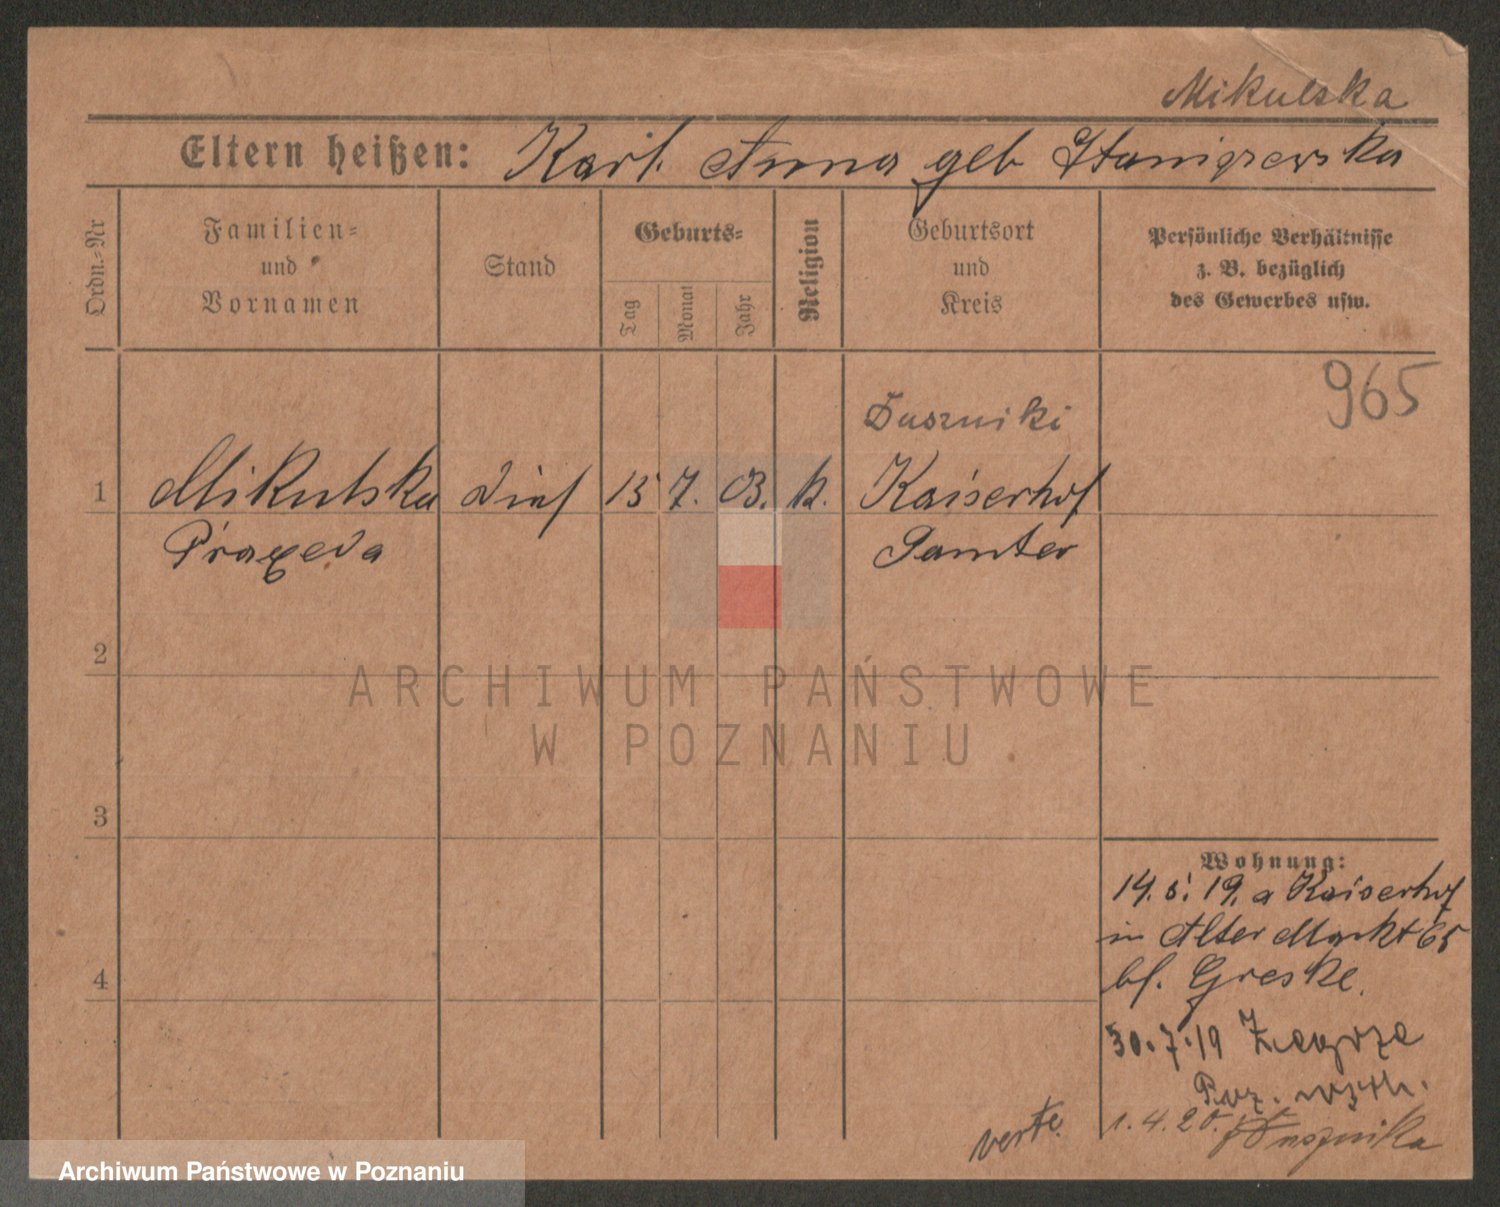 Mikulska
Eltern heißen: Karl. Anna geb Staniszewska
Ordn.-Nr
Familien=
und
Vornamen
Stand
Geburts=
Tag
Monat
Jahr
Religion
Geburtsort
und
Kreis
Persönliche Verhältnisse
z. B. bezüglich
des Gewerbes usw.
965
Duszniki
1 Mikulska 15 7. 03. k. Kaiserhof
Praxeda Samter
2
ARCHIWUM PAŃSTWOWE
W POZNANIU
3
4
Wohnung:
14. 19. a Kaiserhof
in Alter Markt 65
bf. Greske.
30.7.19
1.4.20. Dusznika
verte.
Archiwum Państwowe w Poznaniu